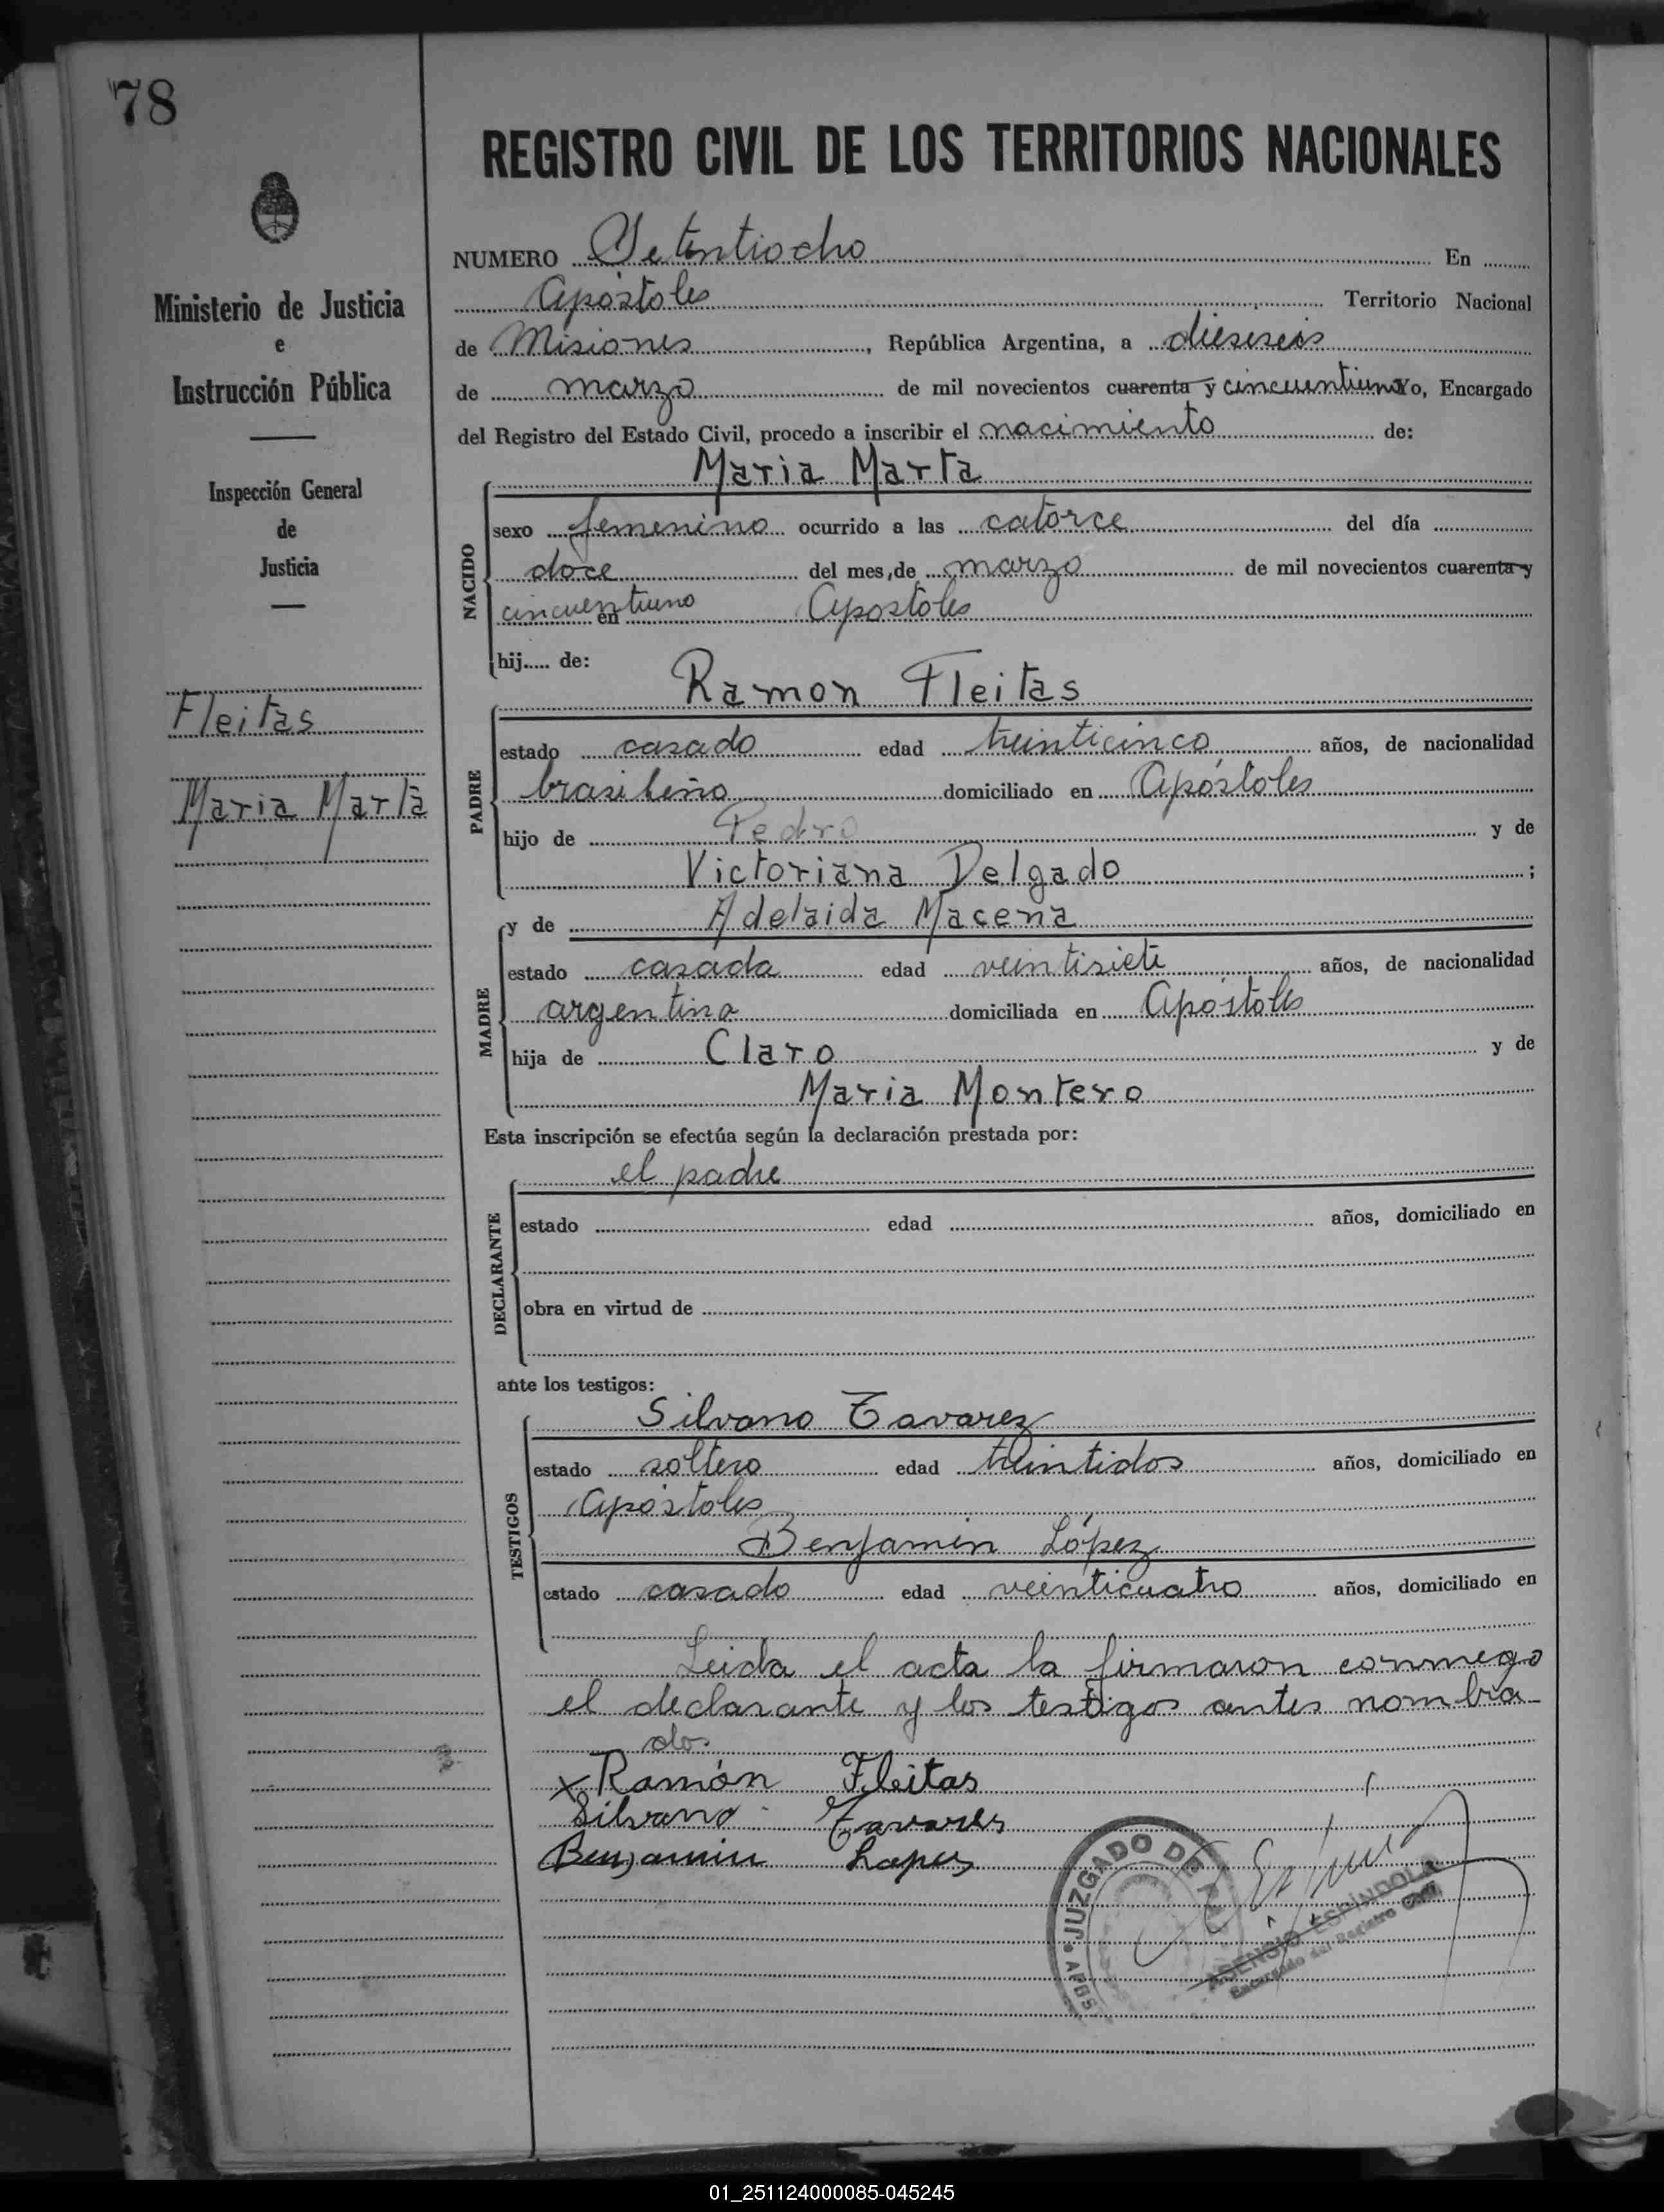 78
REGISTRO CIVIL DE LOS TERRITORIOS NACIONALES
Ministerio de Justicia
e
Instrucción Pública
Inspección General
de
Justicia
Fleitas
Maria Marta
NUMERO Setentiocho En
Apóstoles Territorio Nacional
de Misiones, República Argentina, a dieseseis
de marzo de mil novecientos cuarenta y cincuentiuno Yo, Encargado
del Registro del Estado Civil, procedo a inscribir el nacimiento de:
Maria Marta
NACIDO
sexo femenino ocurrido a las catorce del día
doce del mes de marzo de mil novecientos cuarenta y
cincuentiuno en Apostoles
hij..... de:
Ramon Fleitas
PADRE
estado casado edad treinticinco años, de nacionalidad
brasileño domiciliado en Apóstoles
hijo de Pedro y de
Victoriana Delgado ;
y de Adelaida Macena
MADRE
estado casada edad veintisiete años, de nacionalidad
argentina domiciliada en Apóstoles
hija de Claro y de
Maria Montero
Esta inscripción se efectúa según la declaración prestada por:
el padre
DECLARANTE
estado edad años, domiciliado en
obra en virtud de
ante los testigos:
Silvano Tavarez
TESTIGOS
estado soltero edad treintidos años, domiciliado en
Apóstoles
Benjamin López
estado casado edad veinticuatro años, domiciliado en
Leida el acta la firmaron conmego
el declarante y los testigos antes nombra-
dos.
x Ramón Fleitas
Silvano Tavares
Benjamin Lopes
JUZGADO DE
ASENSIO ESPÍNDOLA
Encargado del Registro Civil
01_251124000085-045245